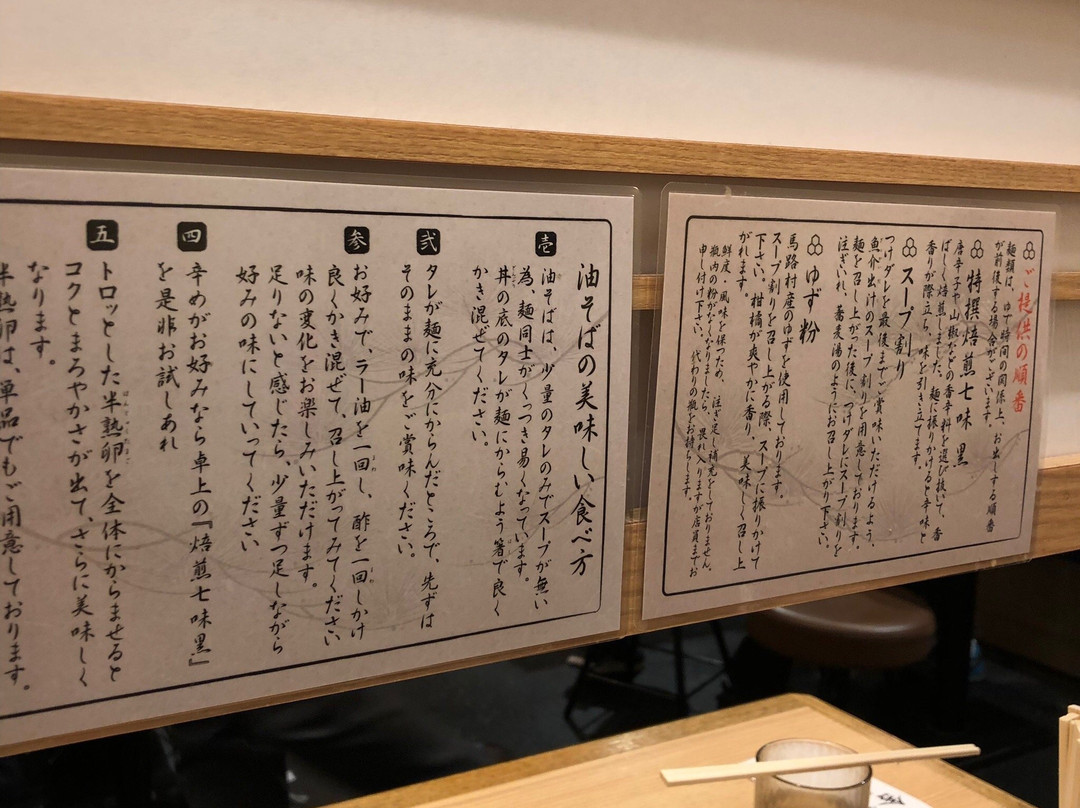 ご提供の順番
麺類は、ゆで時間の関係上、お出しする順番
が前後する場合がございます。
特撰焙煎七味 黒
唐辛子や山椒などの香辛料を選び抜いて、香
ばしく焙煎しました。麺に振りかけると辛味と
香りが際立ち、味を引き立てます。
スープ割り
つけダレを最後までご賞味いただけるよう、
魚介出汁のスープ割りを用意しております。
麺を召し上がった後に、つけダレにスープ割りを
注ぎいれ、蕎麦湯のようにお召し上がり下さい。
ゆず粉
馬路村産のゆずを使用しております。
スープ割りを召し上がる際、スープに振りかけて
下さい。柑橘が爽やかに香り、美味しく召し上
がれます。
鮮度・風味を保つため、注ぎ足し補充をしておりません。
瓶内の粉がなくなりましたら、畏れ入りますが店員までお
申し付け下さい。代わりの瓶をお持ちします。
油そばの美味しい食べ方
壱 油そばは、少量のタレのみでスープが無い
為、麺同士がくっつき易くなっています。
丼の底のタレが麺にからむよう箸で良く
かき混ぜてください。
弐 タレが麺に充分にからんだところで、先ずは
そのままの味をご賞味ください。
参 お好みで、ラー油を一回し、酢を一回しかけ
良くかき混ぜて、召し上がってみてください
味の変化をお楽しみいただけます。
足りないと感じたら、少量ずつ足しながら
好みの味にしていってください
四 辛めがお好みなら卓上の『焙煎七味黒』
を是非お試しあれ
五 トロッとした半熟卵を全体にからませると
コクとまろやかさが出て、さらに美味しく
なります。
半熟卵は、単品でもご用意しております。